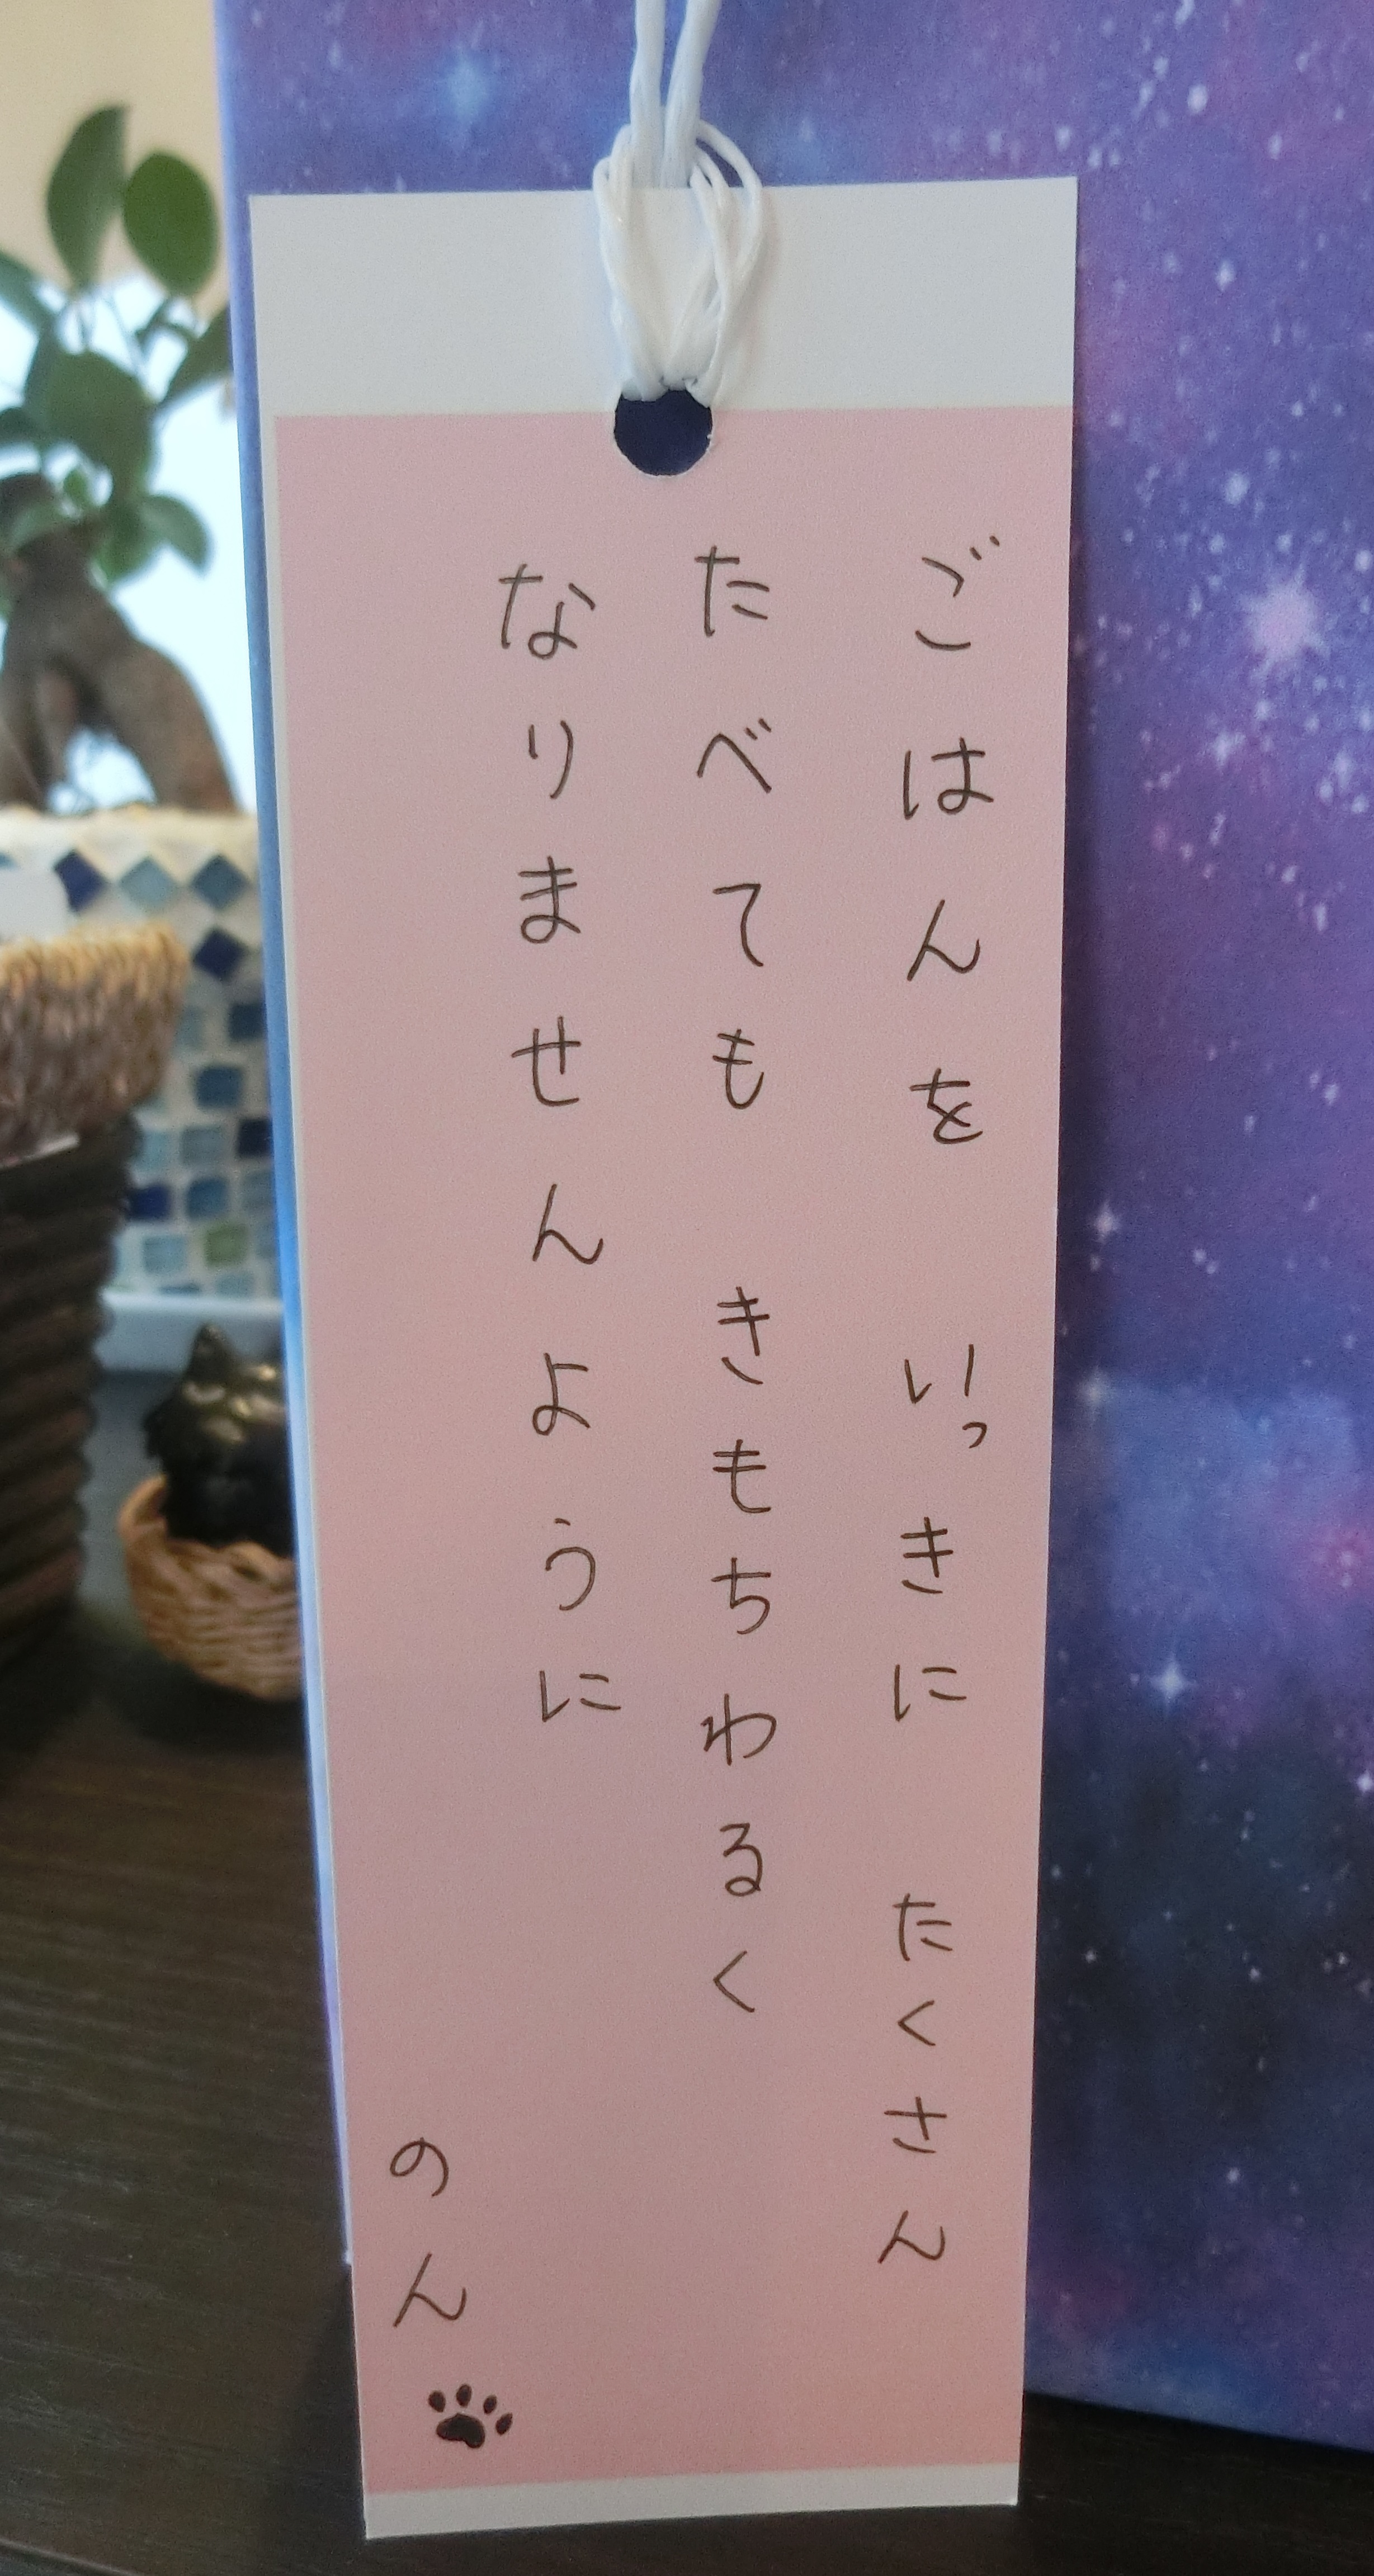 ごはんを　いっきに　たくさん
たべても　きもちわるく
なりませんように
のん